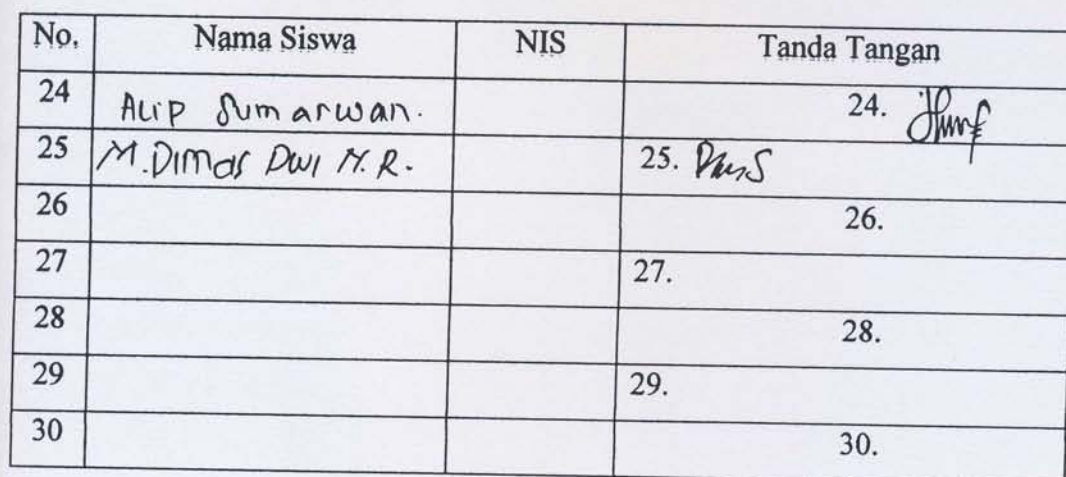 No. Nama Siswa NIS Tanda Tangan
24 Alip Sumarwan. 24.
25 M.Dimas Dwi M.R. 25.
26 26.
27 27.
28 28.
29 29.
30 30.